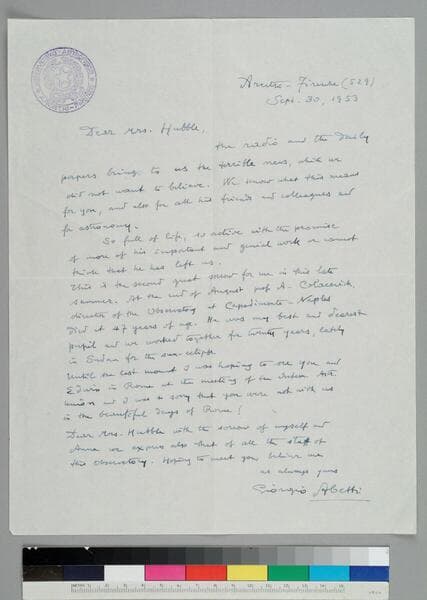 Arcetri - Firenze (529)
Sept. 30, 1953
Dear Mrs. Hubble,
the radio and the daily
papers bring to us the terrible news, which we
did not want to believe. We know what this means
for you, and also for all his friends and colleagues and
for astronomy.
So full of life, so active with the promise
of more of his important and genial work we cannot
think that he has left us.
This is the second great sorrow for me in this late
summer. At the end of August prof. A. Colacevich,
director of the Observatory at Capodimonte - Naples
died at 47 years of age. He was my best and dearest
pupil and we worked together for twenty years, lately
in Sudan for the sun eclipse.
Until the last moment I was hoping to see you and
Edwin in Rome at the meeting of the Intern. Astr.
Union and I was so sorry that you were not with us
in the beautiful days of Rome!
Dear Mrs. Hubble with the sorrow of myself and
Anna we express also that of all the staff of
this Observatory. Hoping to meet you, believe me
as always yours
Giorgio Abetti